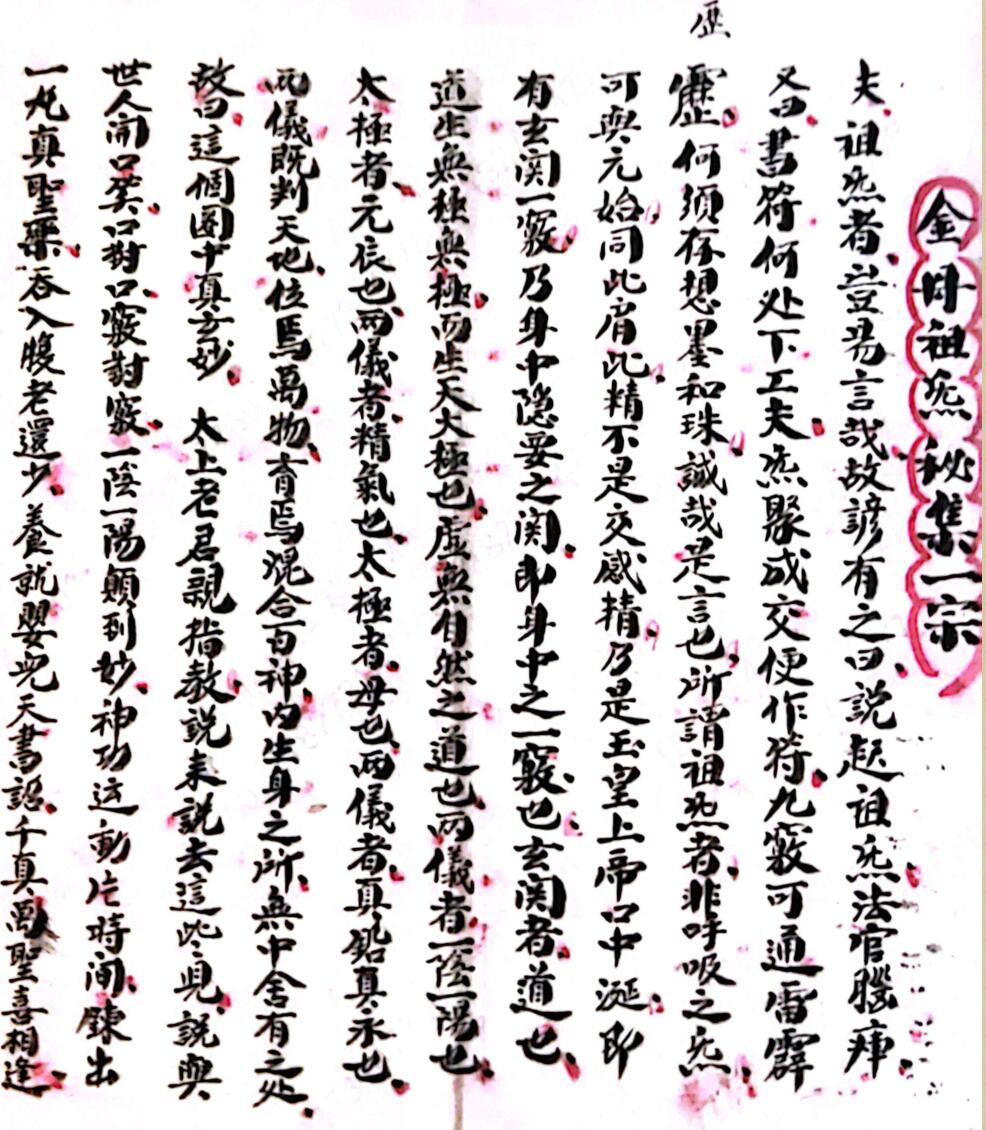 金丹祖炁秘集一宗
夫祖炁者豈易言哉故諺有之曰説起祖炁法官腦痛
又曰書符何处下工夫炁聚成交便作符九竅可通雷霹
靂何須存想墨和珠誠哉是言也所謂祖炁者非呼吸之炁
歷
可與元始同此肩此精不是交感精乃是玉皇上帝口中涎即
有玄関一竅乃身中隐妥之関即身中之一竅也玄関者道也
道生無極無極而生天大極也虛無自然之道也两儀者一陰一陽也
太極者元辰也两儀者精氣也太極者母也两儀者真鉛真汞也
两儀既判天地位焉萬物育焉混合百神内生身之所無中舍有之处
故曰這個圈中真玄妙 太上老君親指教説来説去這些兒説與
世人開口笑口對口竅對竅一陰一陽顛到妙神功运動片時间鍊出
一丸真聖藥吞入腹老還少養就嬰児天書詔千真萬聖喜相逢